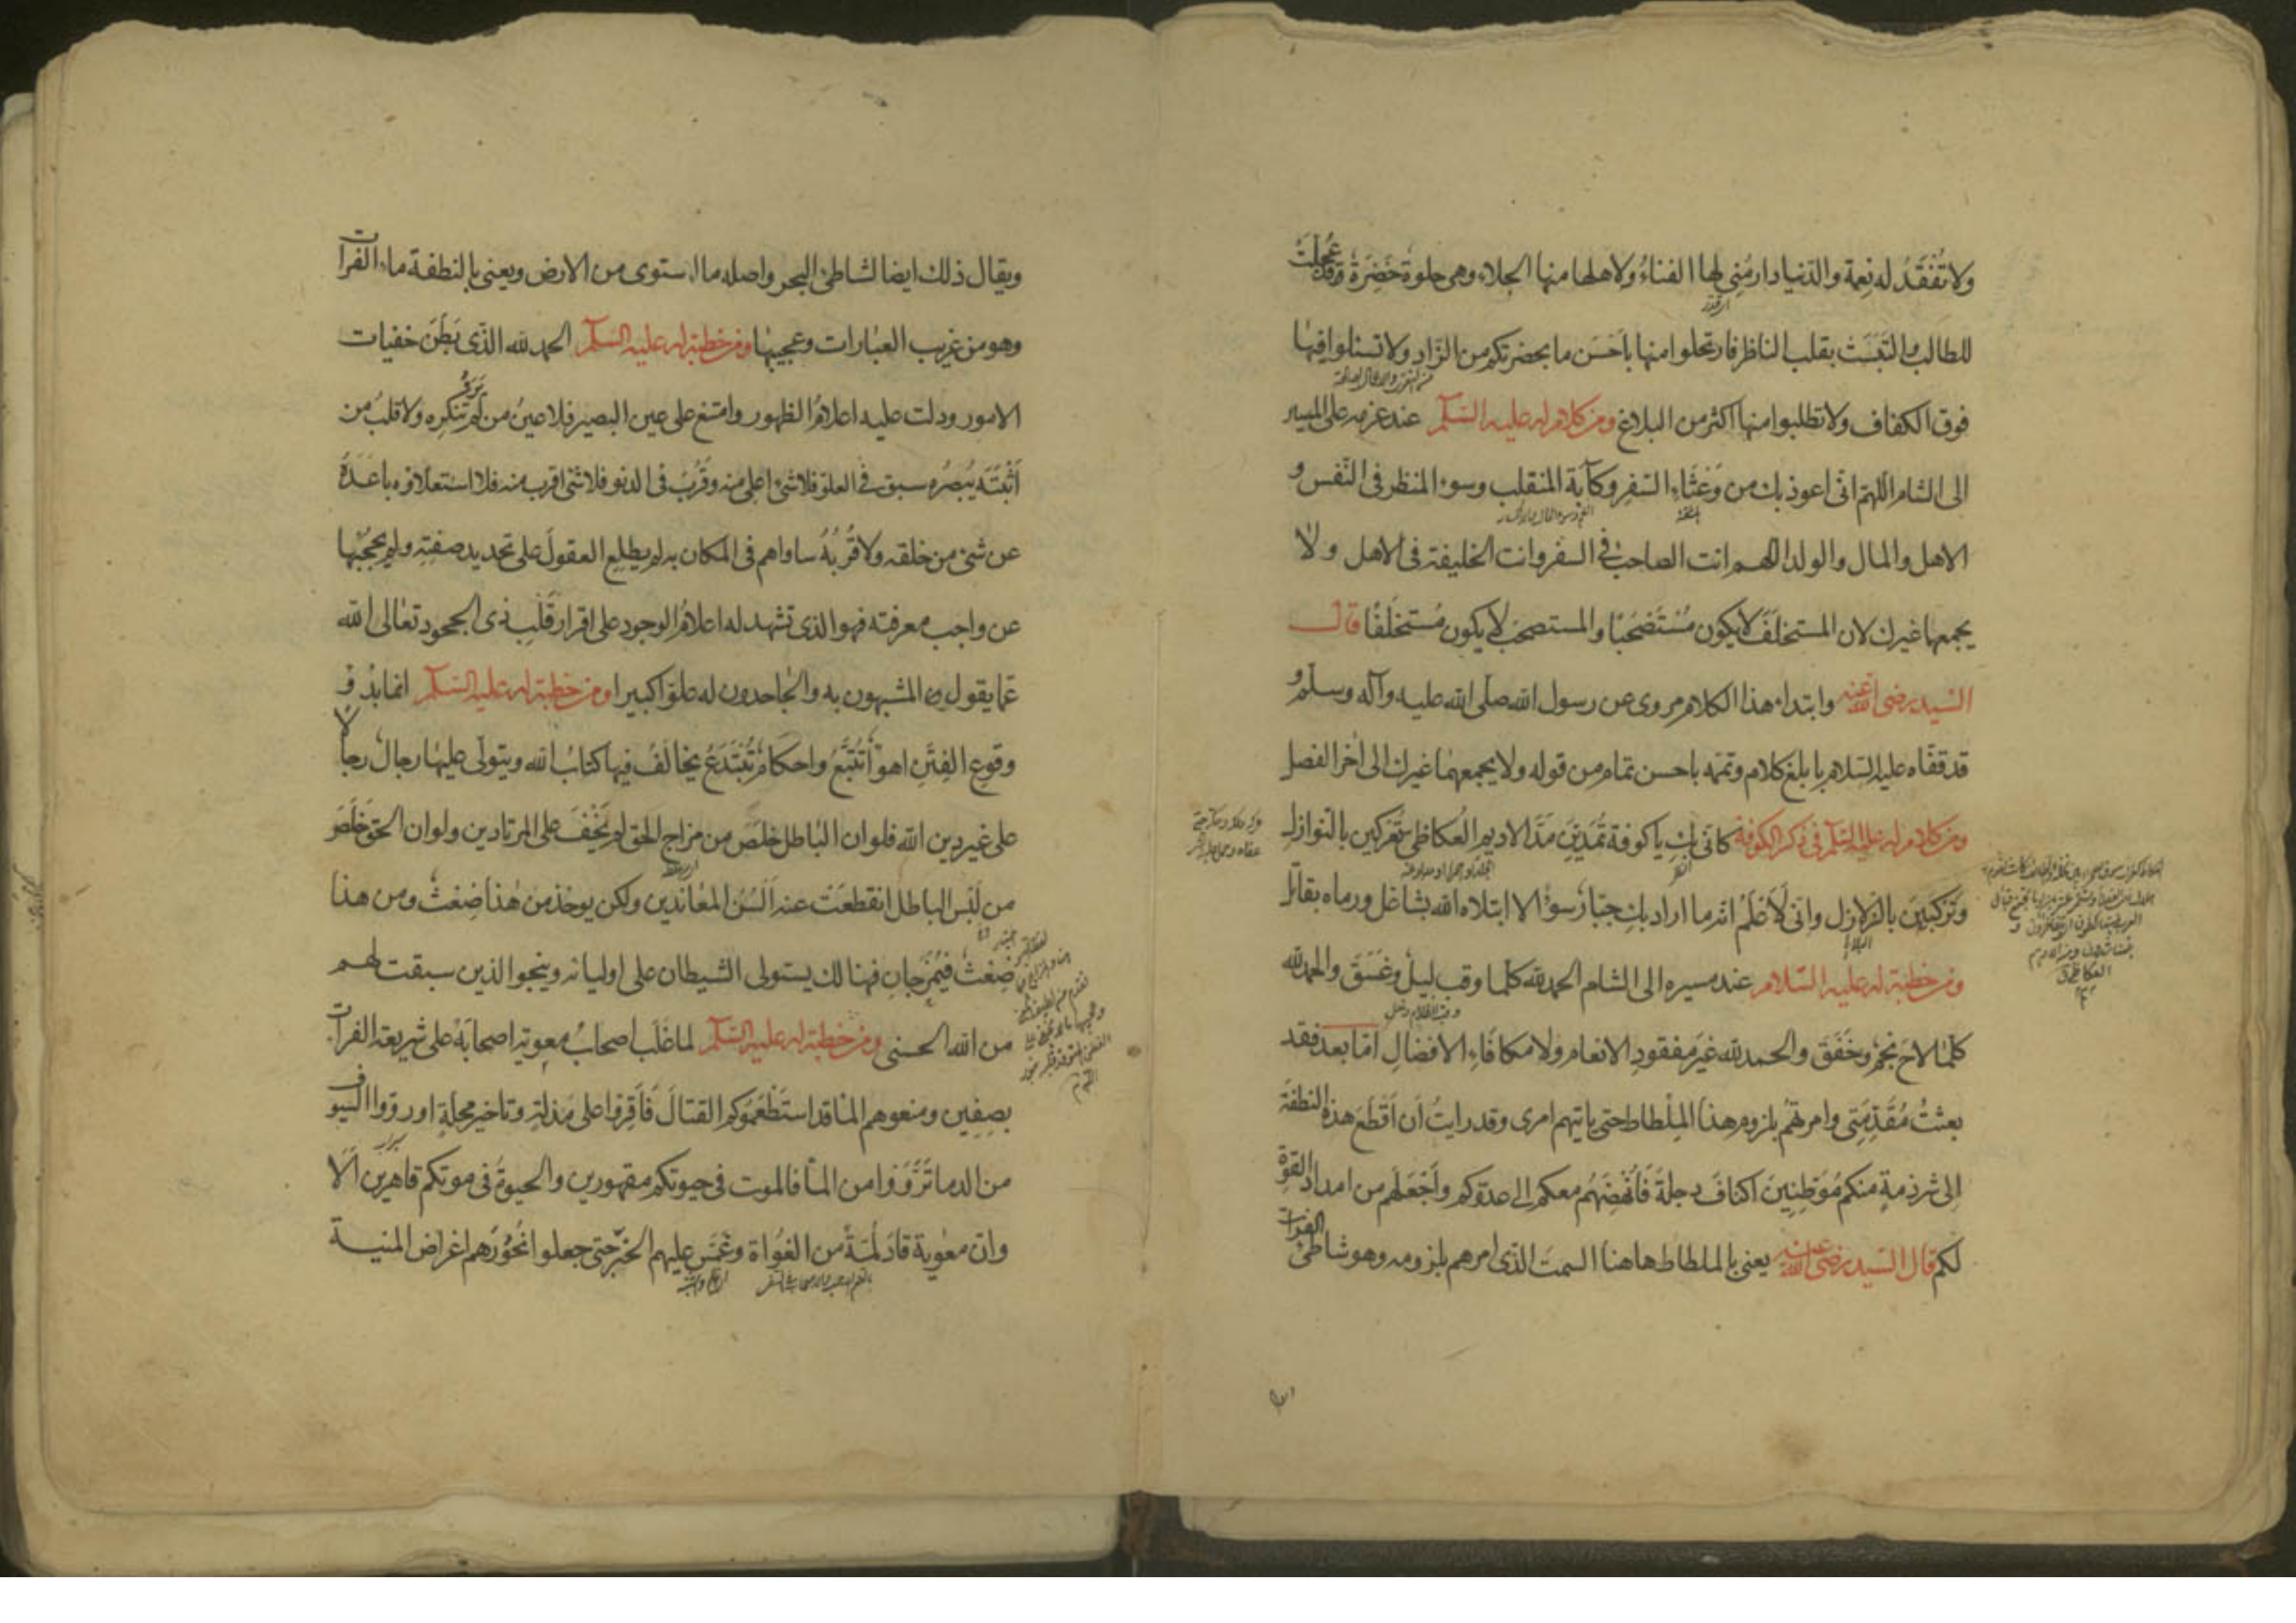 ولا تُفْقَدُ له نِعمة والدّنيا دار مُنِي لها الفناءُ ولاهلها منها الجلاء وهي حلوة خَضِرَةٌ وقد عُجِّلَتْ
للطالب والتَبَسَتْ بقلب الناظر فارتحلوا منها باَحْسَن ما بحضرتكم من الزّاد ولا تسئلوا فيها
فوق الكفاف ولا تطلبوا منها اكثر من البلاغ ومن كلام له عليه السّلم عند عزمه على المسير
الى الشام اللّهمّ انّى اعوذ بك من وَعْثَاءِ السّفر وكآبة المنقلب وسوء المنظر فى النّفس و
الاهل والمال والولد اللّهم انت الصاحب فى السفر وانت الخليفة فى الاهل ولا
يجمعهما غيرك لان المستخلَفَ لا يكون مُسْتَصْحَبًا والمستصحَبَ لا يكون مُستَخلَفًا قال
السّيد رضى الله عنه وابتداء هذا الكلام مروى عن رسول الله صلّى الله عليه وآله وسلّم و
قد قفّاه عليه السّلام بابلغ كلام وتمّمه باحسن تمام من قوله ولا يجمعهما غيرك الى اخر الفصل
ومن كلام له عليه السّلم فى ذكر الكوفة كانّى بكِ يا كوفة تُمَدّينَ مَدَّ الاديم العُكاظى تُعْرَكينَ بالنّوازل
وتُرْكَبينَ بالزلازل وانّى لَاَعْلَمُ انّه ما اراد بكِ جبّارٌ سوءًا الا ابتلاه الله بشاغل ورماه بقاتل
البلايا
ومن خطبة له عليه السّلام عند مسيره الى الشام الحمد لله كلّما وقب ليلٌ وغَسَقَ والحمد لله
وقب الظلام دخل
كلّما لاحَ نجمٌ وخَفَقَ والحمد لله غيرَ مفقودِ الانعام ولا مكافَاءِ الافضالِ امّا بعد فقد
بعثتُ مُقَدِّمَتى وامرتُهُم بلزوم هذا المِلْطاط حتى ياتيهم امرى وقد رايتُ اَن اَقْطَعَ هذه النطفة
الى شرذمةٍ منكم مُوَطِّنينَ اكنافَ دجلةَ فَاُنْهِضَهُم معكم الى عدوّكم واَجْعَلَهم من امداد القوّة
لكم قال السّيد رضى الله عنه يعنى بالملطاط هاهنا السمتَ الذّى امرهم بلزومه وهو شاطئ الفرات
ويقال ذلك ايضا لشاطئ البحر واصله ما استوى من الارض ويعنى بالنطفة ماء الفرات
وهو من غريب العبارات وعجيبها ومن خطبة له عليه السّلم الحمد لله الذّى بَطَنَ خفيات
الامور ودلت عليه اعلامُ الظهور وامتنع على عين البصير فلا عينُ من لم يَرَه تنكره ولا قلبُ من
اَثْبَتَه يُبْصِرُه سبق فى العلوّ فلا شئ اعلى منه وقَرُبَ فى الدنو فلا شئ اقرب منه فلا استعلاؤه باعَدَهُ
عن شئ من خلقه ولا قُرْبُهُ ساواهم فى المكان به لم يطلع العقولَ على تحديد صفتِه ولم يحجُبْها
عن واجب معرفته فهو الذى تشهد له اعلامُ الوجود على اقرار قَلْبِ ذى الجحود تعالى الله
عمّا يقول المشبهون به والجاحدون له علوّا كبيرا ومن خطبة له عليه السّلم انما بدؤ
وقوع الفِتَنِ اهواءٌ تُتَّبَعُ واحكامٌ تُبْتَدَعُ يخالَفُ فيها كتابُ الله ويتولّى عليها رجالٌ رجالًا
على غير دين الله فلو ان الباطل خلص من مزاج الحق لم يَخْفَ على المرتادين ولو ان الحق خَلَصَ
من لَبْسِ الباطل انقطعَتْ عنه اَلْسُنُ المعاندين ولكن يوخذ من هذا ضِغثٌ ومن هذا
ضِغثٌ فيُمْزَجانِ فهنالك يستولى الشيطان على اوليائه وينجو الذين سبقت لهم
من الله الحسنى ومن خطبة له عليه السّلم لما غلب اصحابُ معوية اصحابَهُ على شريعة الفرات
بصِفّين ومنعوهم الماء قد استَطْعَمُوكم القتالَ فَاَقِرّوا على مَذلّةٍ وتاخيرِ محلّةٍ او روّوا السّيوف
من الدماء تَرْوَوْا من الماء فالموت فى حيوتكم مقهورين والحيوةُ فى موتكم قاهرين اَلَا
وانّ معٰوية قادَ لُمَةً من الغُواة وعَمَسَ عليهم الخبَرَ حتى جعلوا نُحُورَهم اغراض المنية